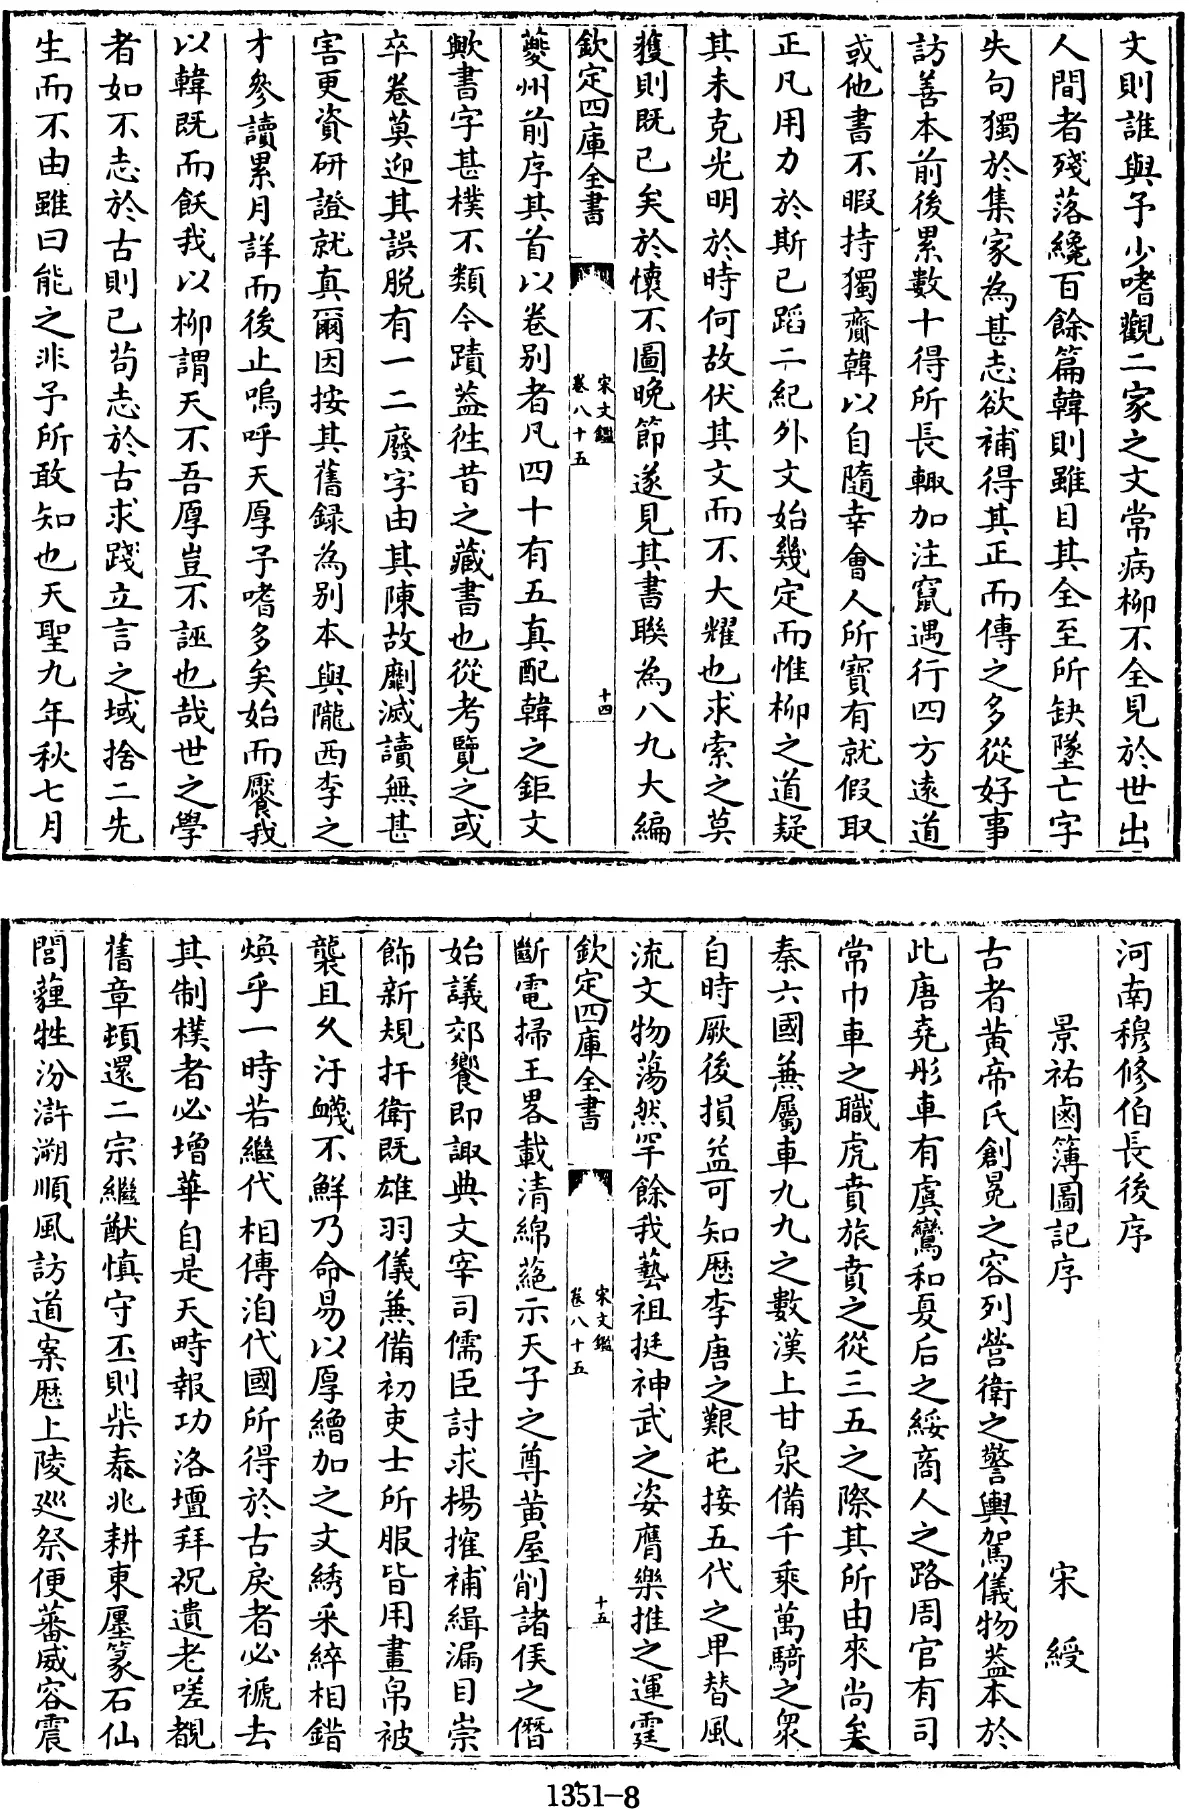 文則誰與予少嗜觀二家之文常病柳不全見於世出
人間者殘落纔百餘篇韓則雖目其全至所缺墜亡字
失句獨於集家為甚志欲補得其正而傳之多從好事
訪善本前後累數十得所長輙加注竄遇行四方逺道
或他書不暇持獨齎韓以自隨幸會人所寶有就假取
正凡用力於斯已蹈二紀外文始幾定而惟柳之道疑
其未克光明於時何故伏其文而不大耀也求索之莫
獲則既已矣於懷不圖晩節遂見其書聯為八九大編
欽定四庫全書
宋文鑑
卷八十五
十四
夔州前序其首以卷别者凡四十有五真配韓之鉅文
歟書字甚樸不類今蹟葢徃昔之藏書也從考覽之或
卒卷莫迎其誤脱有一二廢字由其陳故劘滅讀無甚
害更資研證就真爾因按其舊録為别本與隴西李之
才參讀累月詳而後止嗚呼天厚予嗜多矣始而饜我
以韓既而飫我以柳謂天不吾厚豈不誣也哉世之學
者如不志於古則已茍志於古求踐立言之域捨二先
生而不由雖曰能之非予所敢知也天聖九年秋七月
河南穆修伯長後序
景祐鹵簿圖記序
宋綬
古者黄帝氏創冕之容列營衛之警輿駕儀物葢本於
此唐堯彤車有虞鸞和夏后之綏商人之路周官有司
常巾車之職虎賁旅賁之從三五之際其所由來尚矣
秦六國兼屬車九九之數漢上甘泉備千乘萬騎之衆
自時厥後損益可知歴李唐之艱屯接五代之卑替風
流文物蕩然罕餘我藝祖挺神武之姿膺樂推之運霆
欽定四庫全書
宋文鑑
卷八十五
十五
斷電掃王畧載清綿蕝示天子之尊黄屋削諸侯之僭
始議郊饗即諏典文宰司儒臣討求楊搉補緝漏目崇
飾新規扞衛既雄羽儀兼備初吏士所服皆用畫帛被
襲且久汙衊不鮮乃命易以厚繒加之文綉采綷相錯
煥乎一時若繼代相傳洎代國所得於古戾者必褫去
其制樸者必增華自是天畤報功洛壇拜祝遺老嗟覩
舊章頓還二宗繼猷慎守丕則柴泰兆耕東廛篆石仙
閭薶牲汾滸溯順風訪道案厯上陵廵祭便蕃威容震
1351-8